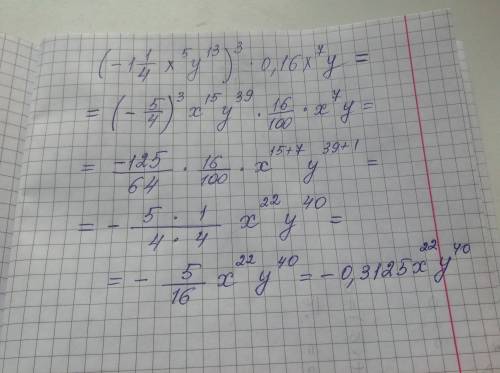 (-1 1/4 x⁵y¹³)³ · 0,16x⁷y =
= (-5/4)³ x¹⁵y³⁹ · 16/100 · x⁷y =
= -125/64 · 16/100 · x¹⁵⁺⁷ y³⁹⁺¹ =
= - 5·1/4·4 x²²y⁴⁰ =
= - 5/16 x²²y⁴⁰ = -0,3125x²²y⁴⁰